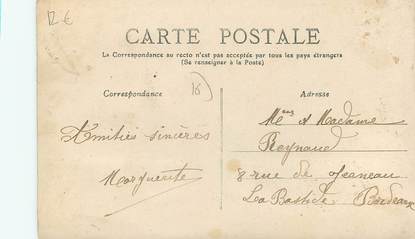 12 €
CARTE POSTALE
La Correspondance au recto n'est pas acceptée par tous les pays étrangers
(Se renseigner à la Poste)
Correspondance
16
Adresse
Amitiés sincères
Marguerite
Mr & Madame
Reynaud
8 rue de Jeaneau
La Bastide Bordeaux